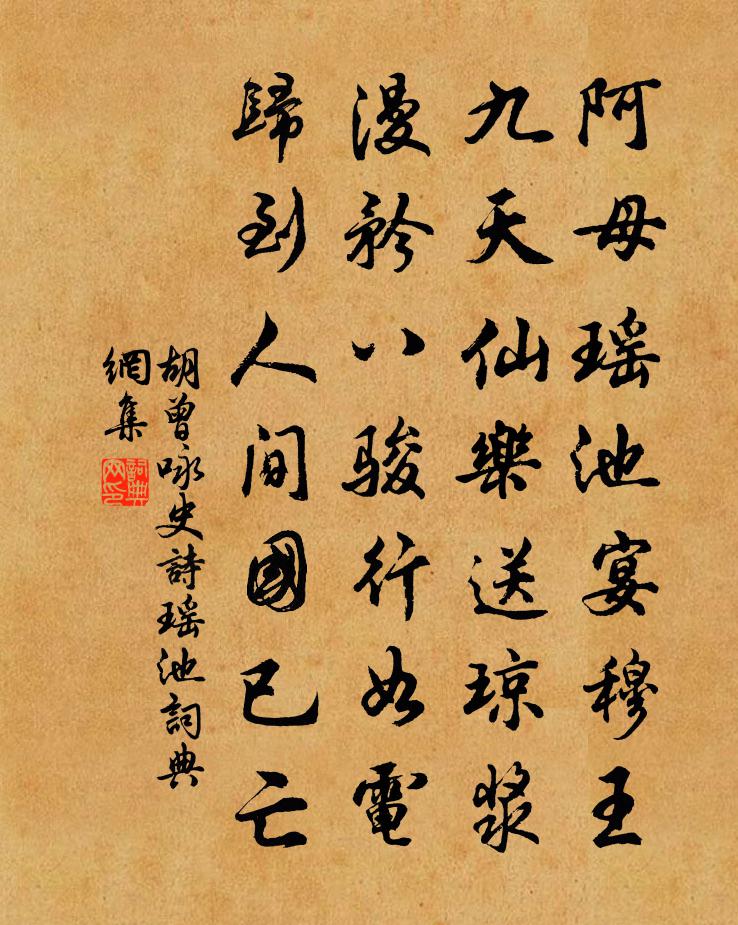 阿母瑶池宴穆王
九天仙樂送琼漿
漫矜八駿行如電
歸到人間國已亡
胡曾咏史詩瑶池詞典
網集
詞典
网印